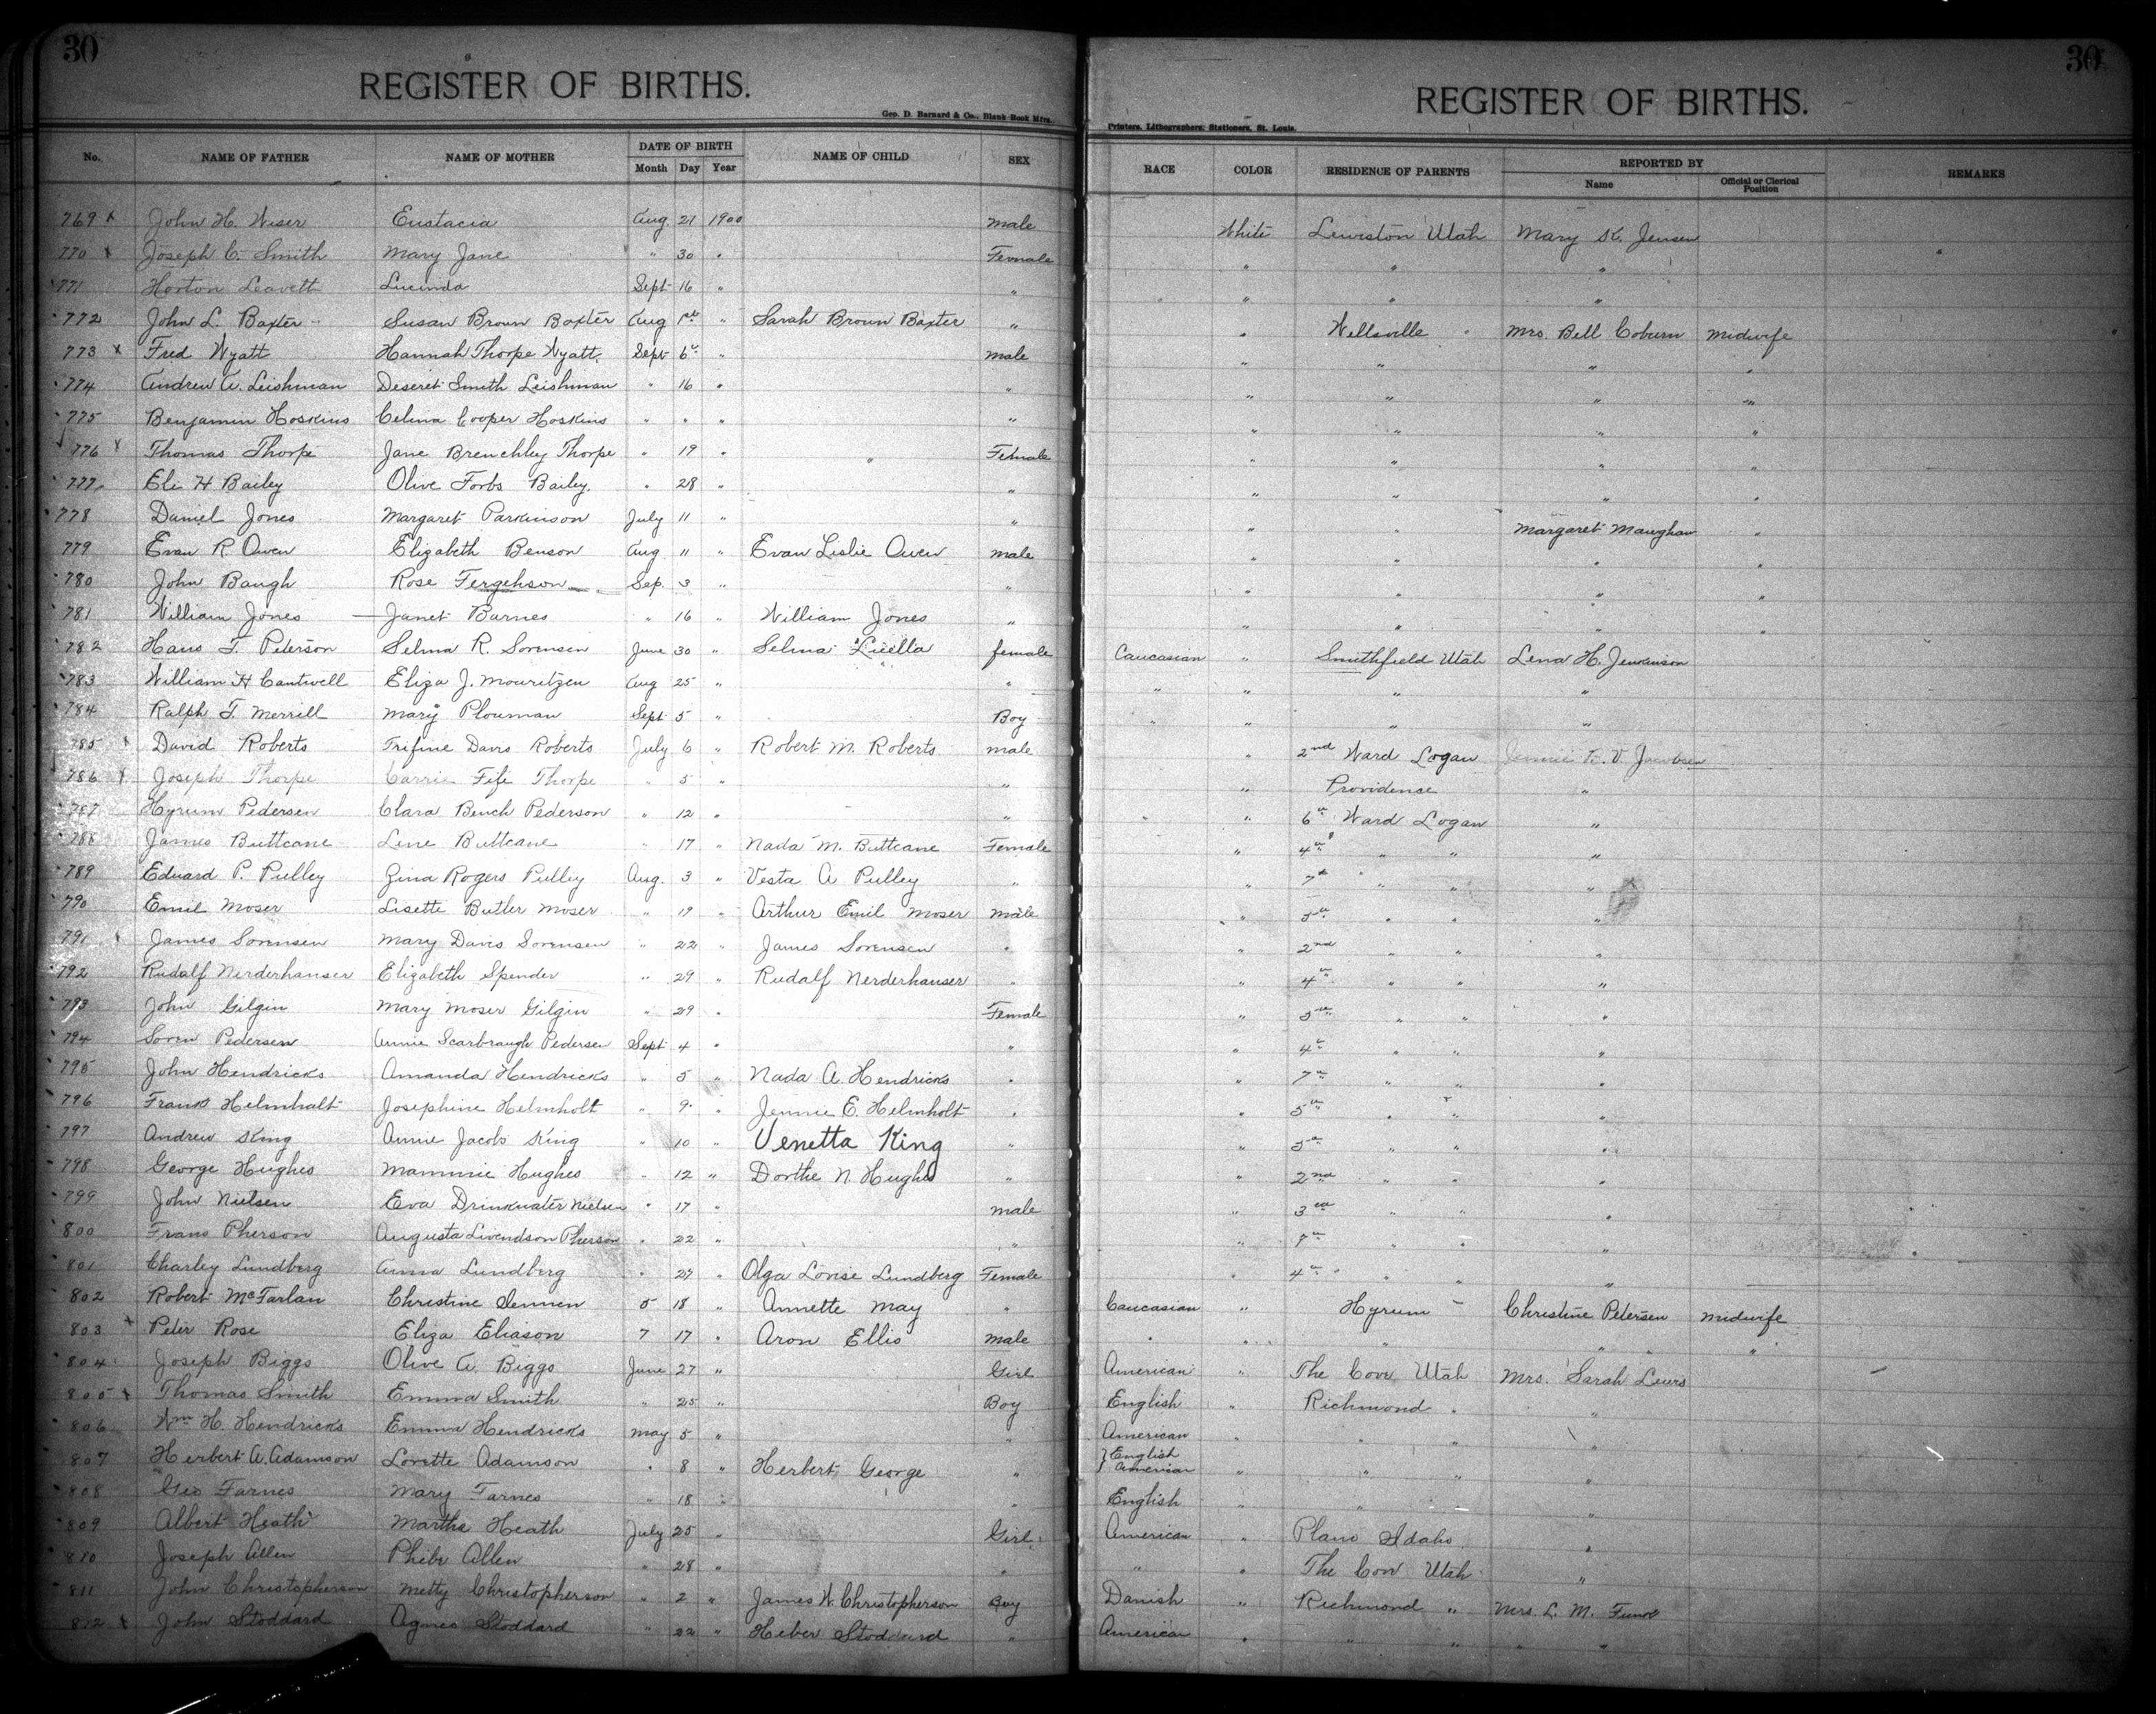 30 30
REGISTER OF BIRTHS. REGISTER OF BIRTHS.
Geo. D. Barnard & Co., Blank Book Mfrs. Printers, Lithographers, Stationers, St. Louis.
No. NAME OF FATHER NAME OF MOTHER DATE OF BIRTH Month Day Year NAME OF CHILD SEX RACE COLOR RESIDENCE OF PARENTS REPORTED BY Name Official or Clerical Position REMARKS
769 x John H. Wiser Eustacia Aug. 21 1900 male White Lewiston Utah Mary K. Jensen
770 x Joseph C. Smith Mary Jane " 30 " Female " " "
771 Horton Leavett Lucinda Sept 16 " " " " "
772 John L. Baxter Susan Brown Baxter Aug 1st " Sarah Brown Baxter " " Wellsville Mrs. Bell Coburn midwife
773 x Fred Wyatt Hannah Thorpe Wyatt Sept 6 " male " " " "
774 Andrew A. Leishman Deseret Smith Leishman " 16 " " " " " "
775 Benjamin Hoskins Celina Cooper Hoskins " " " " " " " "
776 x Thomas Thorpe Jane Brenchley Thorpe " 19 " Female " " " "
777 Eli H Bailey Olive Forbs Bailey. " 28 " " " " " "
778 Daniel Jones Margaret Parkinson July 11 " " " " Margaret Maughan "
779 Evan R Owen Elizabeth Benson Aug. 11 " Evan Leslie Owen male " " " "
780 John Baugh Rose Fergehson Sep. 3 " " " " " "
781 William Jones Janet Barnes " 16 " William Jones " " " " "
782 Hans F. Peterson Selma R. Sorensen June 30 " Selma Luella female Caucasian " Smithfield Utah Lena H. Jenkinson
783 William H Cantwell Eliza J. Mouritzen Aug 25 " " " " " "
784 Ralph T. Merrill Mary Plouman Sept 5 " Boy " " " "
785 x David Roberts Trifine Davis Roberts July 6 " Robert M. Roberts male " 2nd Ward Logan Jennie B. V. Jacobsen
786 x Joseph Thorpe Carrie Fife Thorpe " 5 " " " Providence "
787 Hyrum Pedersen Clara Bench Pederson " 12 " " " " 6th Ward Logan "
788 James Buttcane Line Buttcane " 17 " Nada M. Buttcane Female " 4th " " "
789 Edward P. Pulley Zina Rogers Pulley Aug. 3 " Vesta A Pulley " " 7th " " "
790 Emil Moser Lisette Butler Moser " 19 " Arthur Emil Moser male " 5th " " "
791 James Sorensen Mary Davis Sorensen " 22 " James Sorensen " " 2nd " " "
792 Rudalf Nerderhauser Elizabeth Spender " 29 " Rudalf Nerderhauser " " 4th " " "
793 John Gilgin Mary Moser Gilgin " 29 " Female " 5th " " "
794 Soren Pedersen Annie Scarbraugh Pedersen Sept 4 " " " 4th " " "
795 John Hendricks Amanda Hendricks " 5 " Nada A. Hendricks " " 7th " " "
796 Frank Helmholt Josephine Helmholt " 9 " Jennie E. Helmholt " " 5th " " "
797 Andrew King Annie Jacobs King " 10 " Venetta King " " 5th " " "
798 George Hughes Mammie Hughes " 12 " Dorthe N. Hughes " " 2nd " " "
799 John Nielsen Eva Drinkwater Nielsen " 17 " male " 3rd " " "
800 Frans Pherson Augusta Livendson Pherson " 22 " " " 7th " " "
801 Charley Lundberg Anna Lundberg " 27 " Olga Lovise Lundberg Female " 4th " " "
802 Robert McFarlan Christine 5 18 " Annette May " Caucasian " Hyrum Christine Petersen midwife
803 x Peter Rose Eliza Eliason 7 17 " Aron Ellis male " " " " "
804 Joseph Biggs Olive A. Biggs June 27 " Girl American " The Cove Utah Mrs. Sarah Lewis
805 x Thomas Smith Emma Smith " 25 " Boy English " Richmond " "
806 Wm H. Hendricks Emma Hendricks May 5 " " American " " " "
807 Herbert A. Adamson Lorette Adamson " 8 " Herbert George " English American " " " "
808 Geo Farnes Mary Farnes " 18 " " English " " "
809 Albert Heath Martha Heath July 25 " Girl American " Plano Idaho "
810 Joseph Allen Phibe Allen " 28 " " " " The Cove Utah "
811 John Christopherson Metty Christopherson " 2 " James W. Christopherson Boy Danish " Richmond " Mrs. L. M. Funk
812 x John Stoddard Agnes Stoddard " 22 " Heber Stoddard " American " " " " "